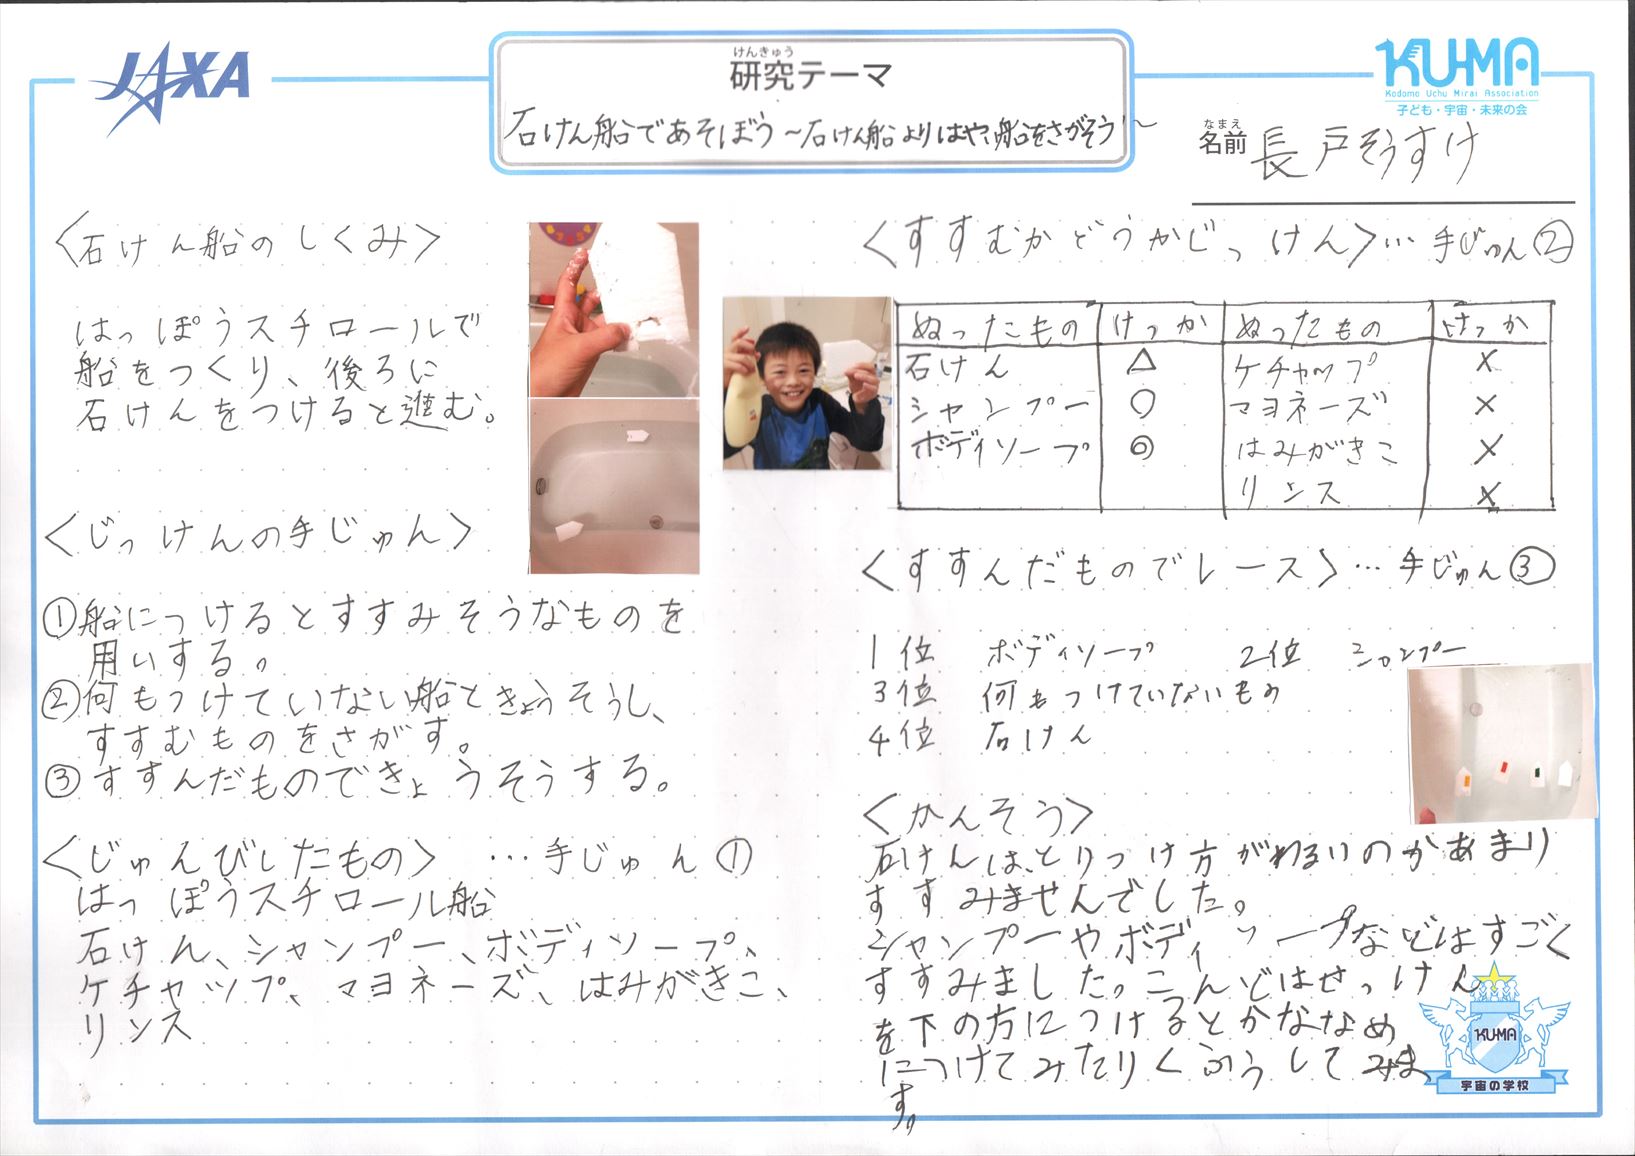 JAXA
けんきゅう
研究テーマ
石けん船であそぼう～石けん船よりはやい船をさがそう～
KU-MA
Kodomo Uchu Mirai Association
子ども・宇宙・未来の会
なまえ
名前 長戸そうすけ
〈石けん船のしくみ〉
はっぽうスチロールで
船をつくり、後ろに
石けんをつけると進む。
〈じっけんの手じゅん〉
①船につけるとすすみそうなものを
用いする。
②何もつけていない船ときょうそうし、
すすむものをさがす。
③すすんだものできょうそうする。
〈じゅんびしたもの〉…手じゅん①
はっぽうスチロール船
石けん、シャンプー、ボディソープ、
ケチャップ、マヨネーズ、はみがきこ、
リンス
〈すすむかどうかじっけん〉…手じゅん②
ぬったもの けっか ぬったもの けっか
石けん △ ケチャップ ×
シャンプー ○ マヨネーズ ×
ボディソープ ◎ はみがきこ ×
リンス ×
〈すすんだものでレース〉…手じゅん③
1位 ボディソープ 2位 シャンプー
3位 何もつけていないもの
4位 石けん
〈かんそう〉
石けんは、とりつけ方がわるいのかあまり
すすみませんでした。
シャンプーやボディソープなどはすごく
すすみました。こんどはせっけん
を下の方につけるとかななめ
につけてみたりくふうしてみま
す。
KU-MA
宇宙の学校